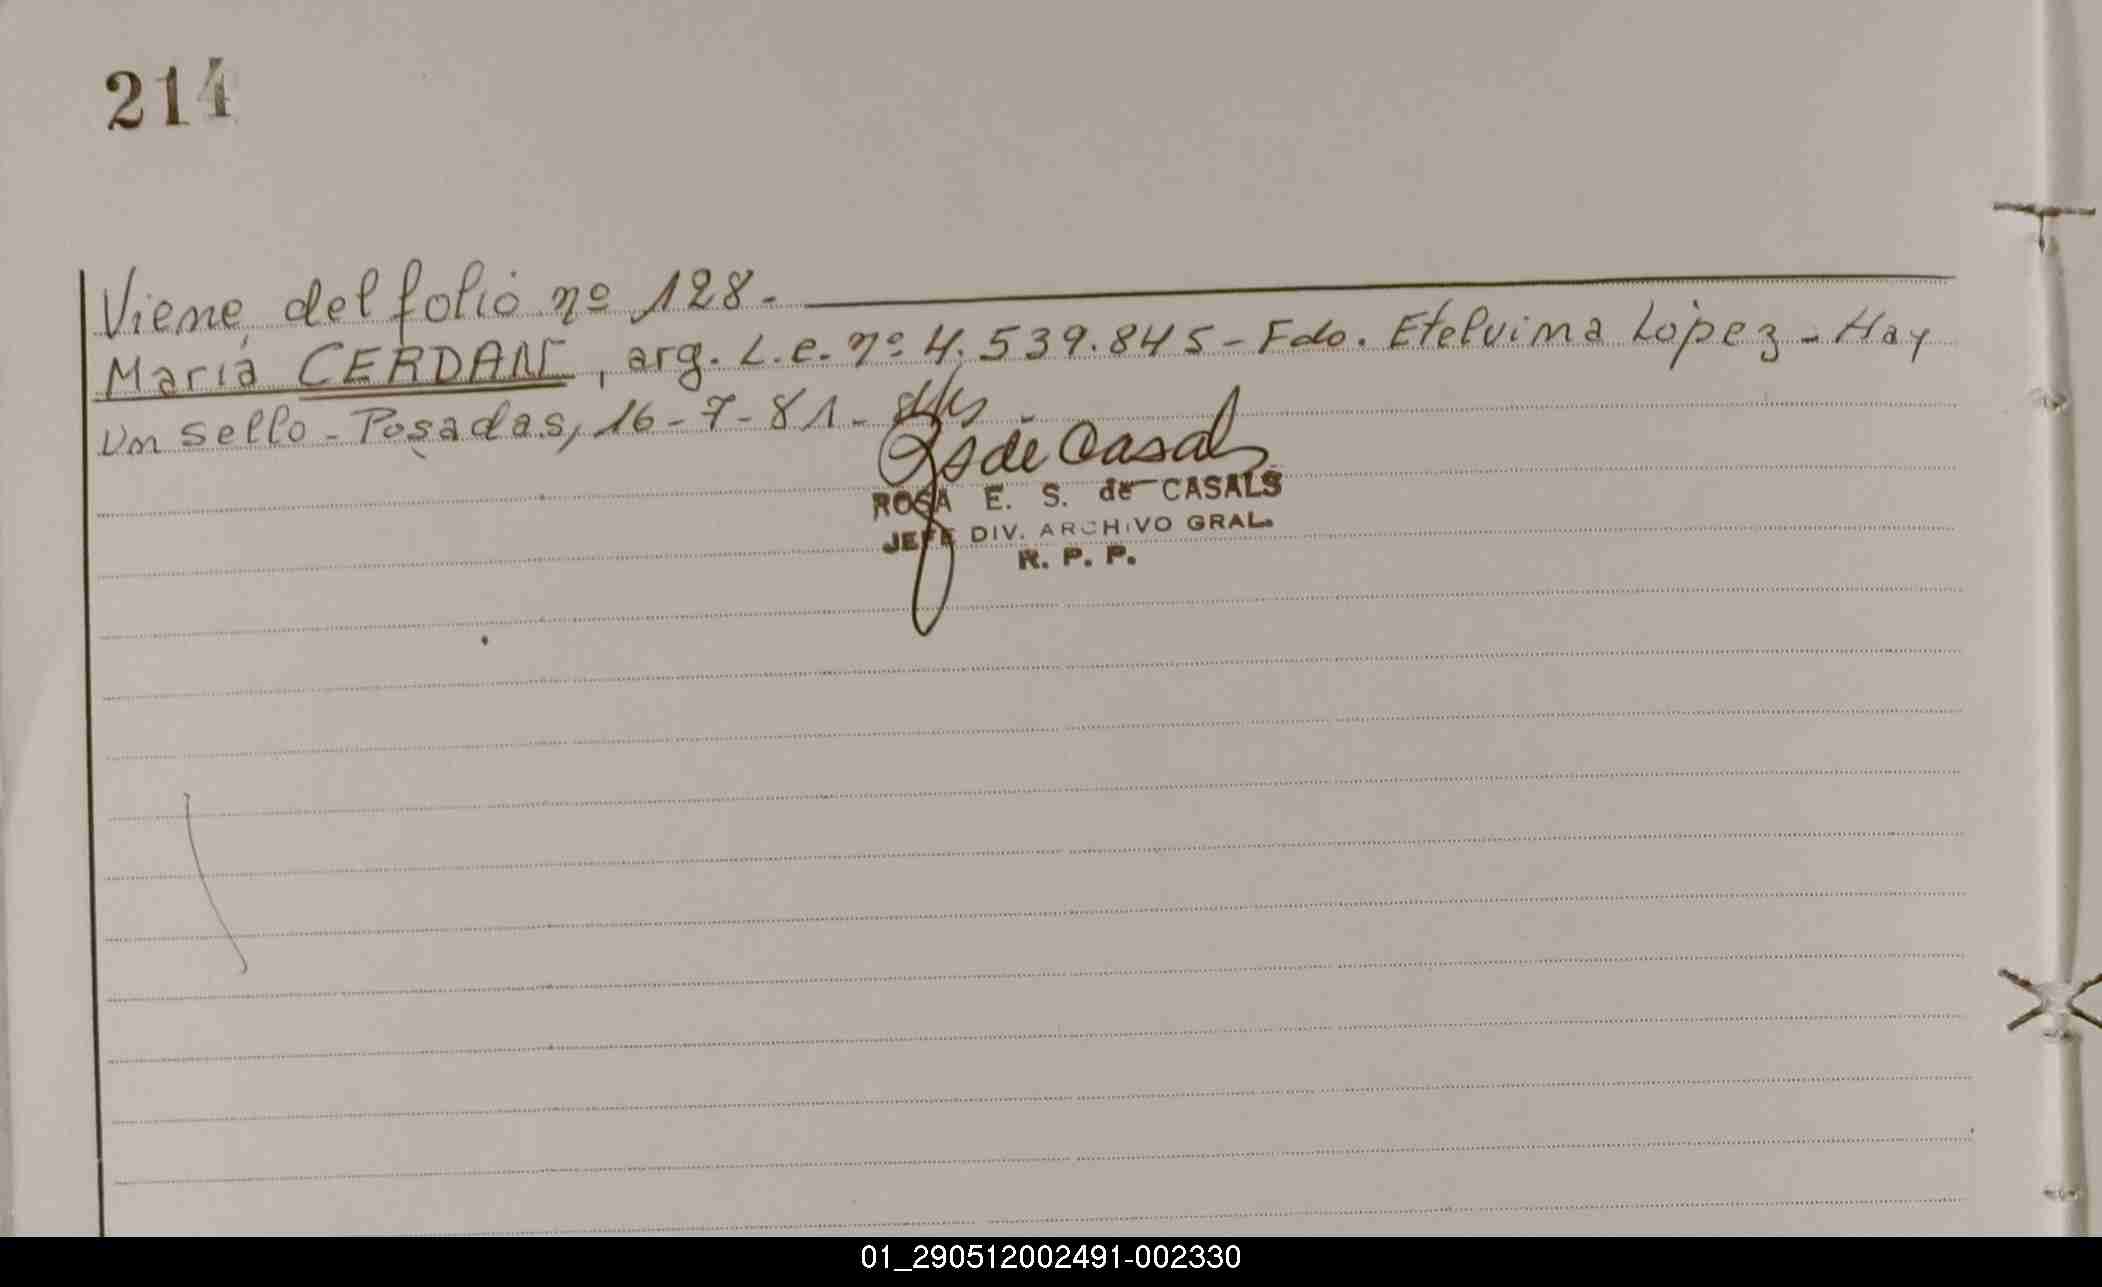 214
Viene del folio nº 128.
María CERDAN, arg. L.e. nº 4.539.845 - Fdo. Etelvina López - Hay
un sello - Posadas, 16-7-81 -
de Casals
ROSA E. S. de CASALS
JEFE DIV. ARCHIVO GRAL.
R. P. P.
01_290512002491-002330